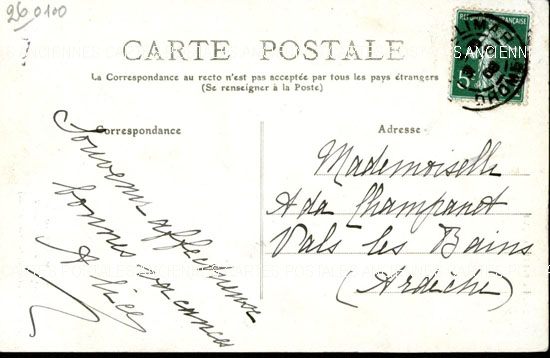 260100
CARTE POSTALE
La Correspondance au recto n'est pas acceptée par tous les pays étrangers
(Se renseigner à la Poste)
Correspondance
Adresse
Souvenir affectueux
bonnes vacances
Alice
Mademoiselle
Ada Champanet
Vals les Bains
(Ardèche)
RÉPUBLIQUE FRANÇAISE
5c
DROME